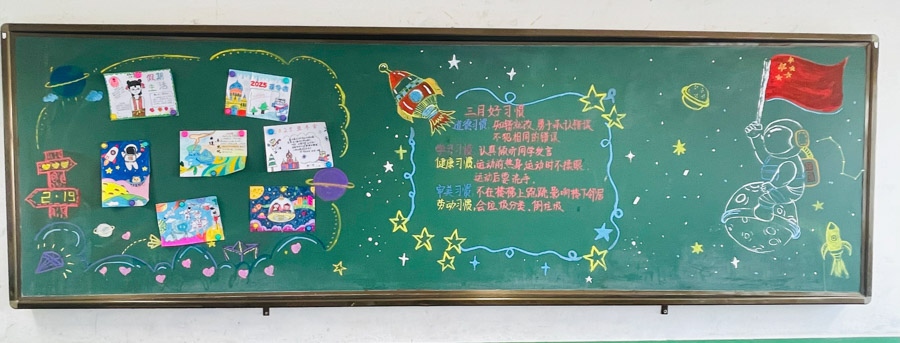 2.19
2023
三月好习惯
道德习惯:知错就改、勇于承认错误
不犯相同的错误
学习习惯:认真倾听同学发言
健康习惯:运动前热身 运动时不揉眼
运动后要洗手
安全习惯:不在楼梯上跑跳、影响楼下邻居
劳动习惯:会垃圾分类、倒垃圾